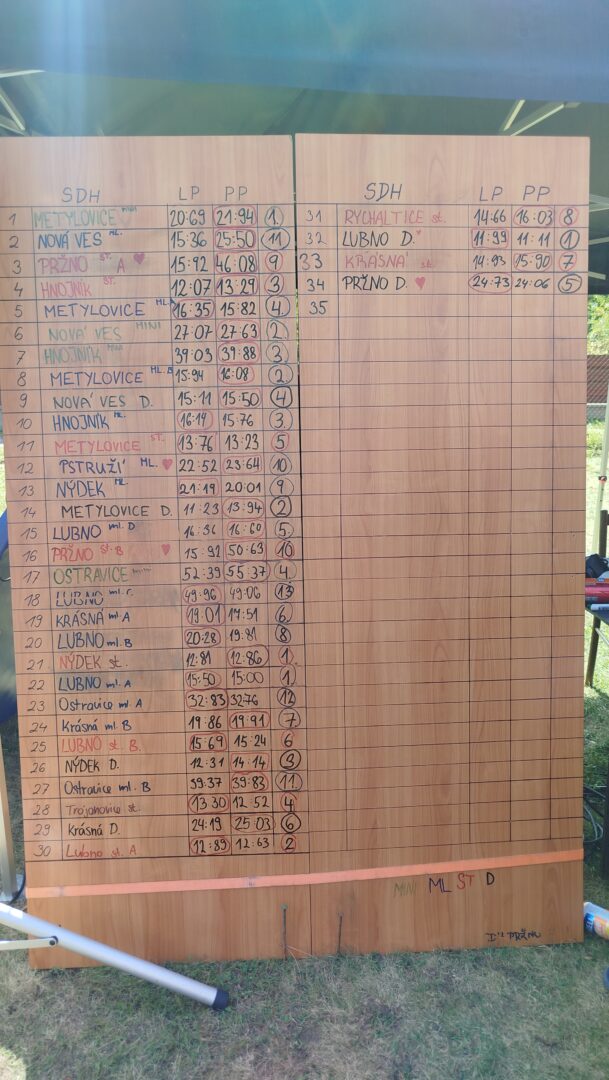 SDH LP PP
1 METYLOVICE MINI 20:69 21:94 1.
2 NOVÁ VES ML. 15:36 25:50 11
3 PRŽNO ST. A ♥ 15:92 46:08 9
4 HNOJNÍK ST. 12:07 13:29 3
5 METYLOVICE ML.A 16:35 15:82 4.
6 NOVÁ VES MINI 27:07 27:63 2.
7 HNOJNÍK MINI 39:03 39:88 3
8 METYLOVICE ML.B 15:94 16:08 2.
9 NOVÁ VES D. 15:11 15:50 4
10 HNOJNÍK ML. 16:14 15:76 3.
11 METYLOVICE ST. 13:76 13:23 5
12 PSTRUŽÍ ML. ♥ 22:52 23:64 10
13 NÝDEK ML. 21:19 20:01 9
14 METYLOVICE D. 11:23 13:94 2
15 LUBNO ml. D 16:36 16:60 5.
16 PRŽNO st. B ♥ 15:92 50:63 10
17 OSTRAVICE mini 52:39 55:37 4.
18 LUBNO ml. C. 49:96 49:06 13
19 KRÁSNÁ ml. A 19:01 17:51 6.
20 LUBNO ml. B 20:28 19:81 8
21 NÝDEK st. 12:81 12:86 1.
22 LUBNO ml. A 15:50 15:00 1.
23 Ostravice ml. A 32:83 32:76 12
24 Krásná ml. B 19:86 19:91 7
25 LUBNO st. B. 15:69 15:24 6
26 NÝDEK D. 12:31 14:14 3
27 Ostravice ml. B 39:37 39:83 11
28 Trojanovice st. 13:30 12:52 4
29 Krásná D. 24:19 25:03 6
30 Lubno st. A 12:89 12:63 2
SDH LP PP
31 RYCHALTICE st. 14:66 16:03 8
32 LUBNO D. 11:99 11:11 1
33 KRÁSNÁ st. 14:93 15:90 7
34 PRŽNO D. ♥ 24:73 24:06 5
35
MINI ML ST D
PRŽNO